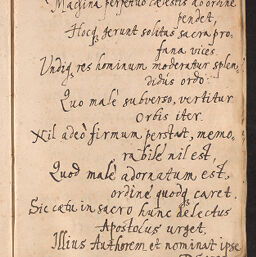 Machina perpetuo cælestis ab ordine
pendet,
Hocq; gerunt solitas sacra pro-
fana vices.
Undiq; res hominum moderatur splen-
didus ordo
Quo malè subverso, vertitur
orbis iter.
Nil adeò firmum perstat, memo-
rabilè nil est.
Quod malè adornatum est,
ordinè quodq; caret.
Sic cœtu in sacro hunc delectus
Apostolus urget.
Illius Authorem et nominat ipse